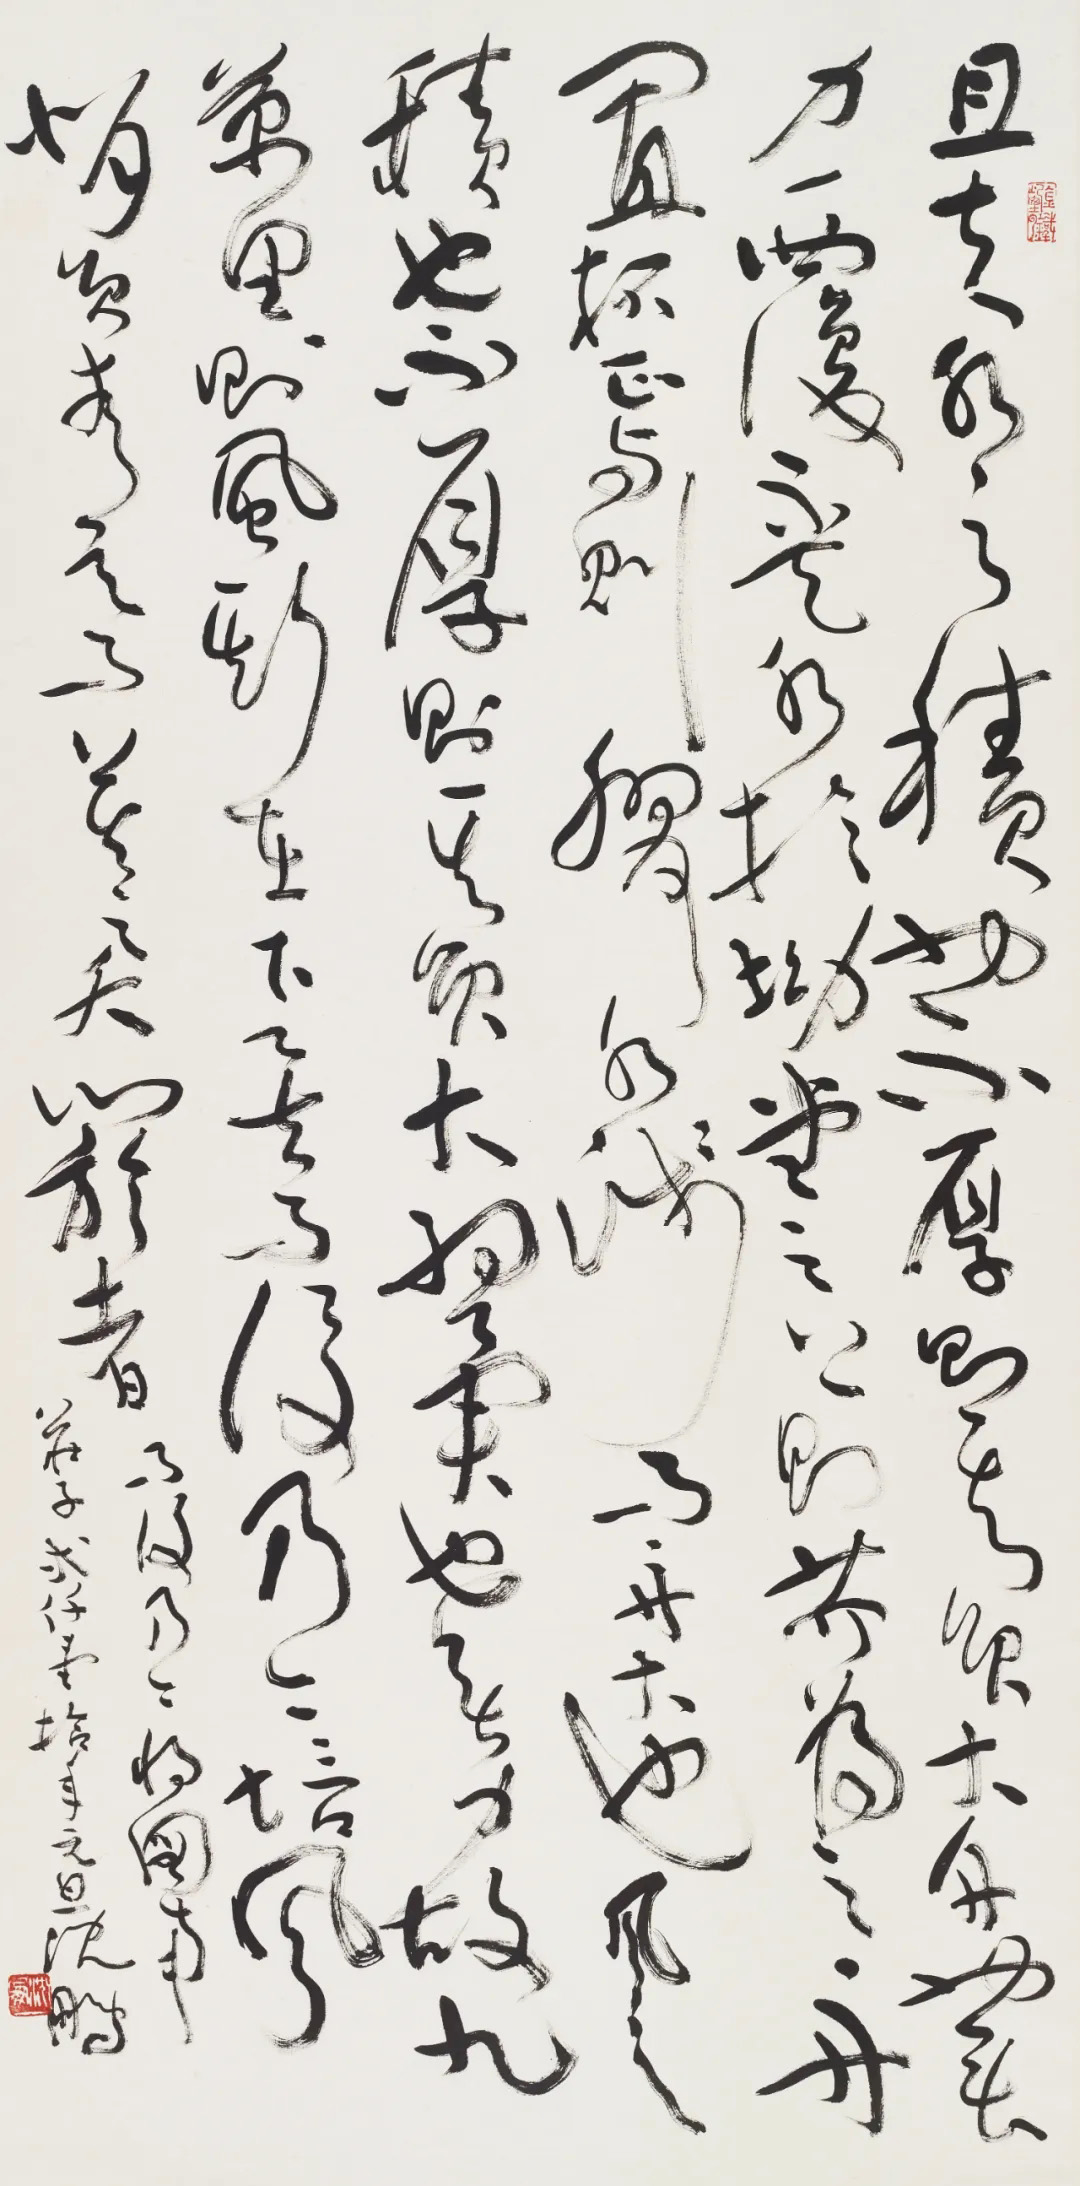 且夫水之積也不厚則其負大舟也無
力覆盃水於坳堂之上則芥為之舟
置杯焉則膠水淺而舟大也風之
積也不厚則其負大翼也無力故九
萬里則風斯在下矣而後乃今培風
背負青天而莫之夭閼者
而後乃今將圖南
莊子 弍仟拾年元旦沈鵬